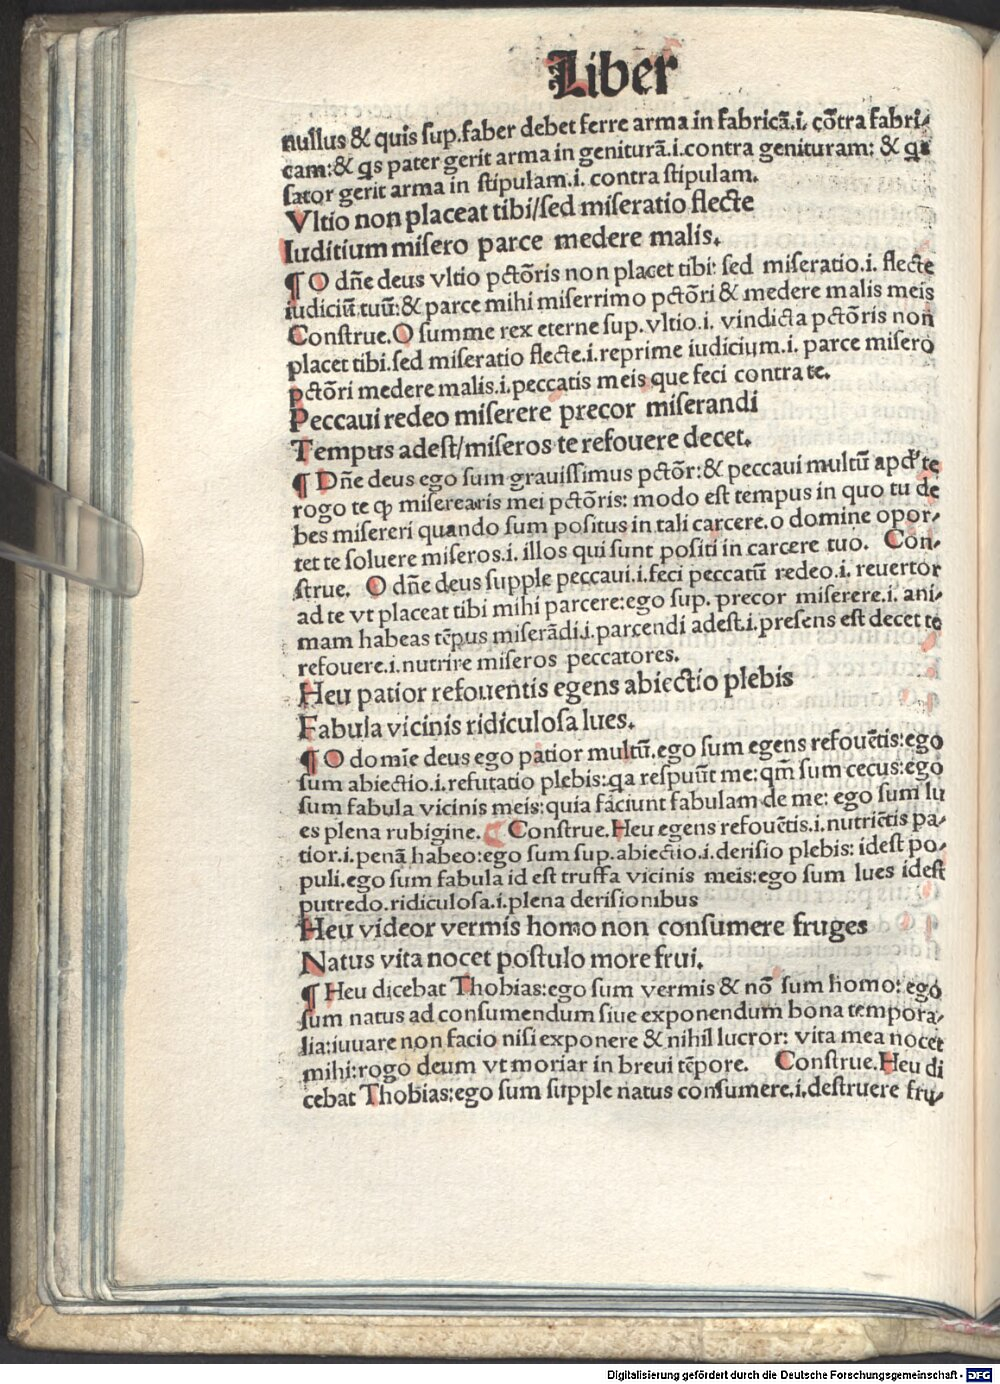 Liber
nullus & quis sup.faber debet ferre arma in fabricā.i. cōtra fabri⸗
cam:& qs pater gerit arma in geniturā.i.contra genituram: & qs
sator gerit arma in stipulam.i. contra stipulam.
Vltio non placeat tibi/sed miseratio flecte
Iuditium misero parce medere malis.
¶ O dn̄e deus vltio pctōris non placet tibi: sed miseratio.i. flecte
iudiciū tuū:& parce mihi miserrimo pctōri & medere malis meis
Construe.O summe rex eterne sup. vltio.i. vindicta pctōris non
placet tibi.sed miseratio flecte.i.reprime iudicium.i. parce misero
pctōri medere malis.i.peccatis meis que feci contra te.
Peccaui redeo miserere precor miserandi
Tempus adest/miseros te refouere decet.
¶ Dn̄e deus ego sum grauissimus pctōr:& peccaui multū apd' te
rogo te ꝙ miserearis mei pctōris: modo est tempus in quo tu de
bes misereri quando sum positus in tali carcere.o domine opor⸗
tet te soluere miseros.i. illos qui sunt positi in carcere tuo. Con⸗
strue. O dn̄e deus supple peccaui.i.feci peccatū redeo.i. reuertor
ad te vt placeat tibi mihi parcere:ego sup. precor miserere.i. ani⸗
mam habeas tēpus miserādi.i.parcendi adest.i.presens est decet te
refouere.i.nutrire miseros peccatores.
Heu patior refouentis egens abiectio plebis
Fabula vicinis ridiculosa lues.
¶ O domīe deus ego patior multū.ego sum egens refouētis:ego
sum abiectio.i.refutatio plebis:qa respuūt me:qm̄ sum cecus:ego
sum fabula vicinis meis:quia faciunt fabulam de me: ego sum lu
es plena rubigine. Construe.Heu egens refouētis.i.nutriētis pa⸗
tior.i.penā habeo:ego sum sup.abiectio.i.derisio plebis: idest po⸗
puli.ego sum fabula id est truffa vicinis meis:ego sum lues idest
putredo.ridiculosa.i.plena derisionibus
Heu videor vermis homo non consumere fruges
Natus vita nocet postulo more frui.
¶ Heu dicebat Thobias:ego sum vermis & nō sum homo: ego
sum natus ad consumendum siue exponendum bona tempora⸗
lia:iuuare non facio nisi exponere & nihil lucror: vita mea nocet
mihi:rogo deum vt moriar in breui tēpore. Construe.Heu di
cebat Thobias:ego sum supple natus consumere.i.destruere fru⸗
Digitalisierung gefördert durch die Deutsche Forschungsgemeinschaft - DFG